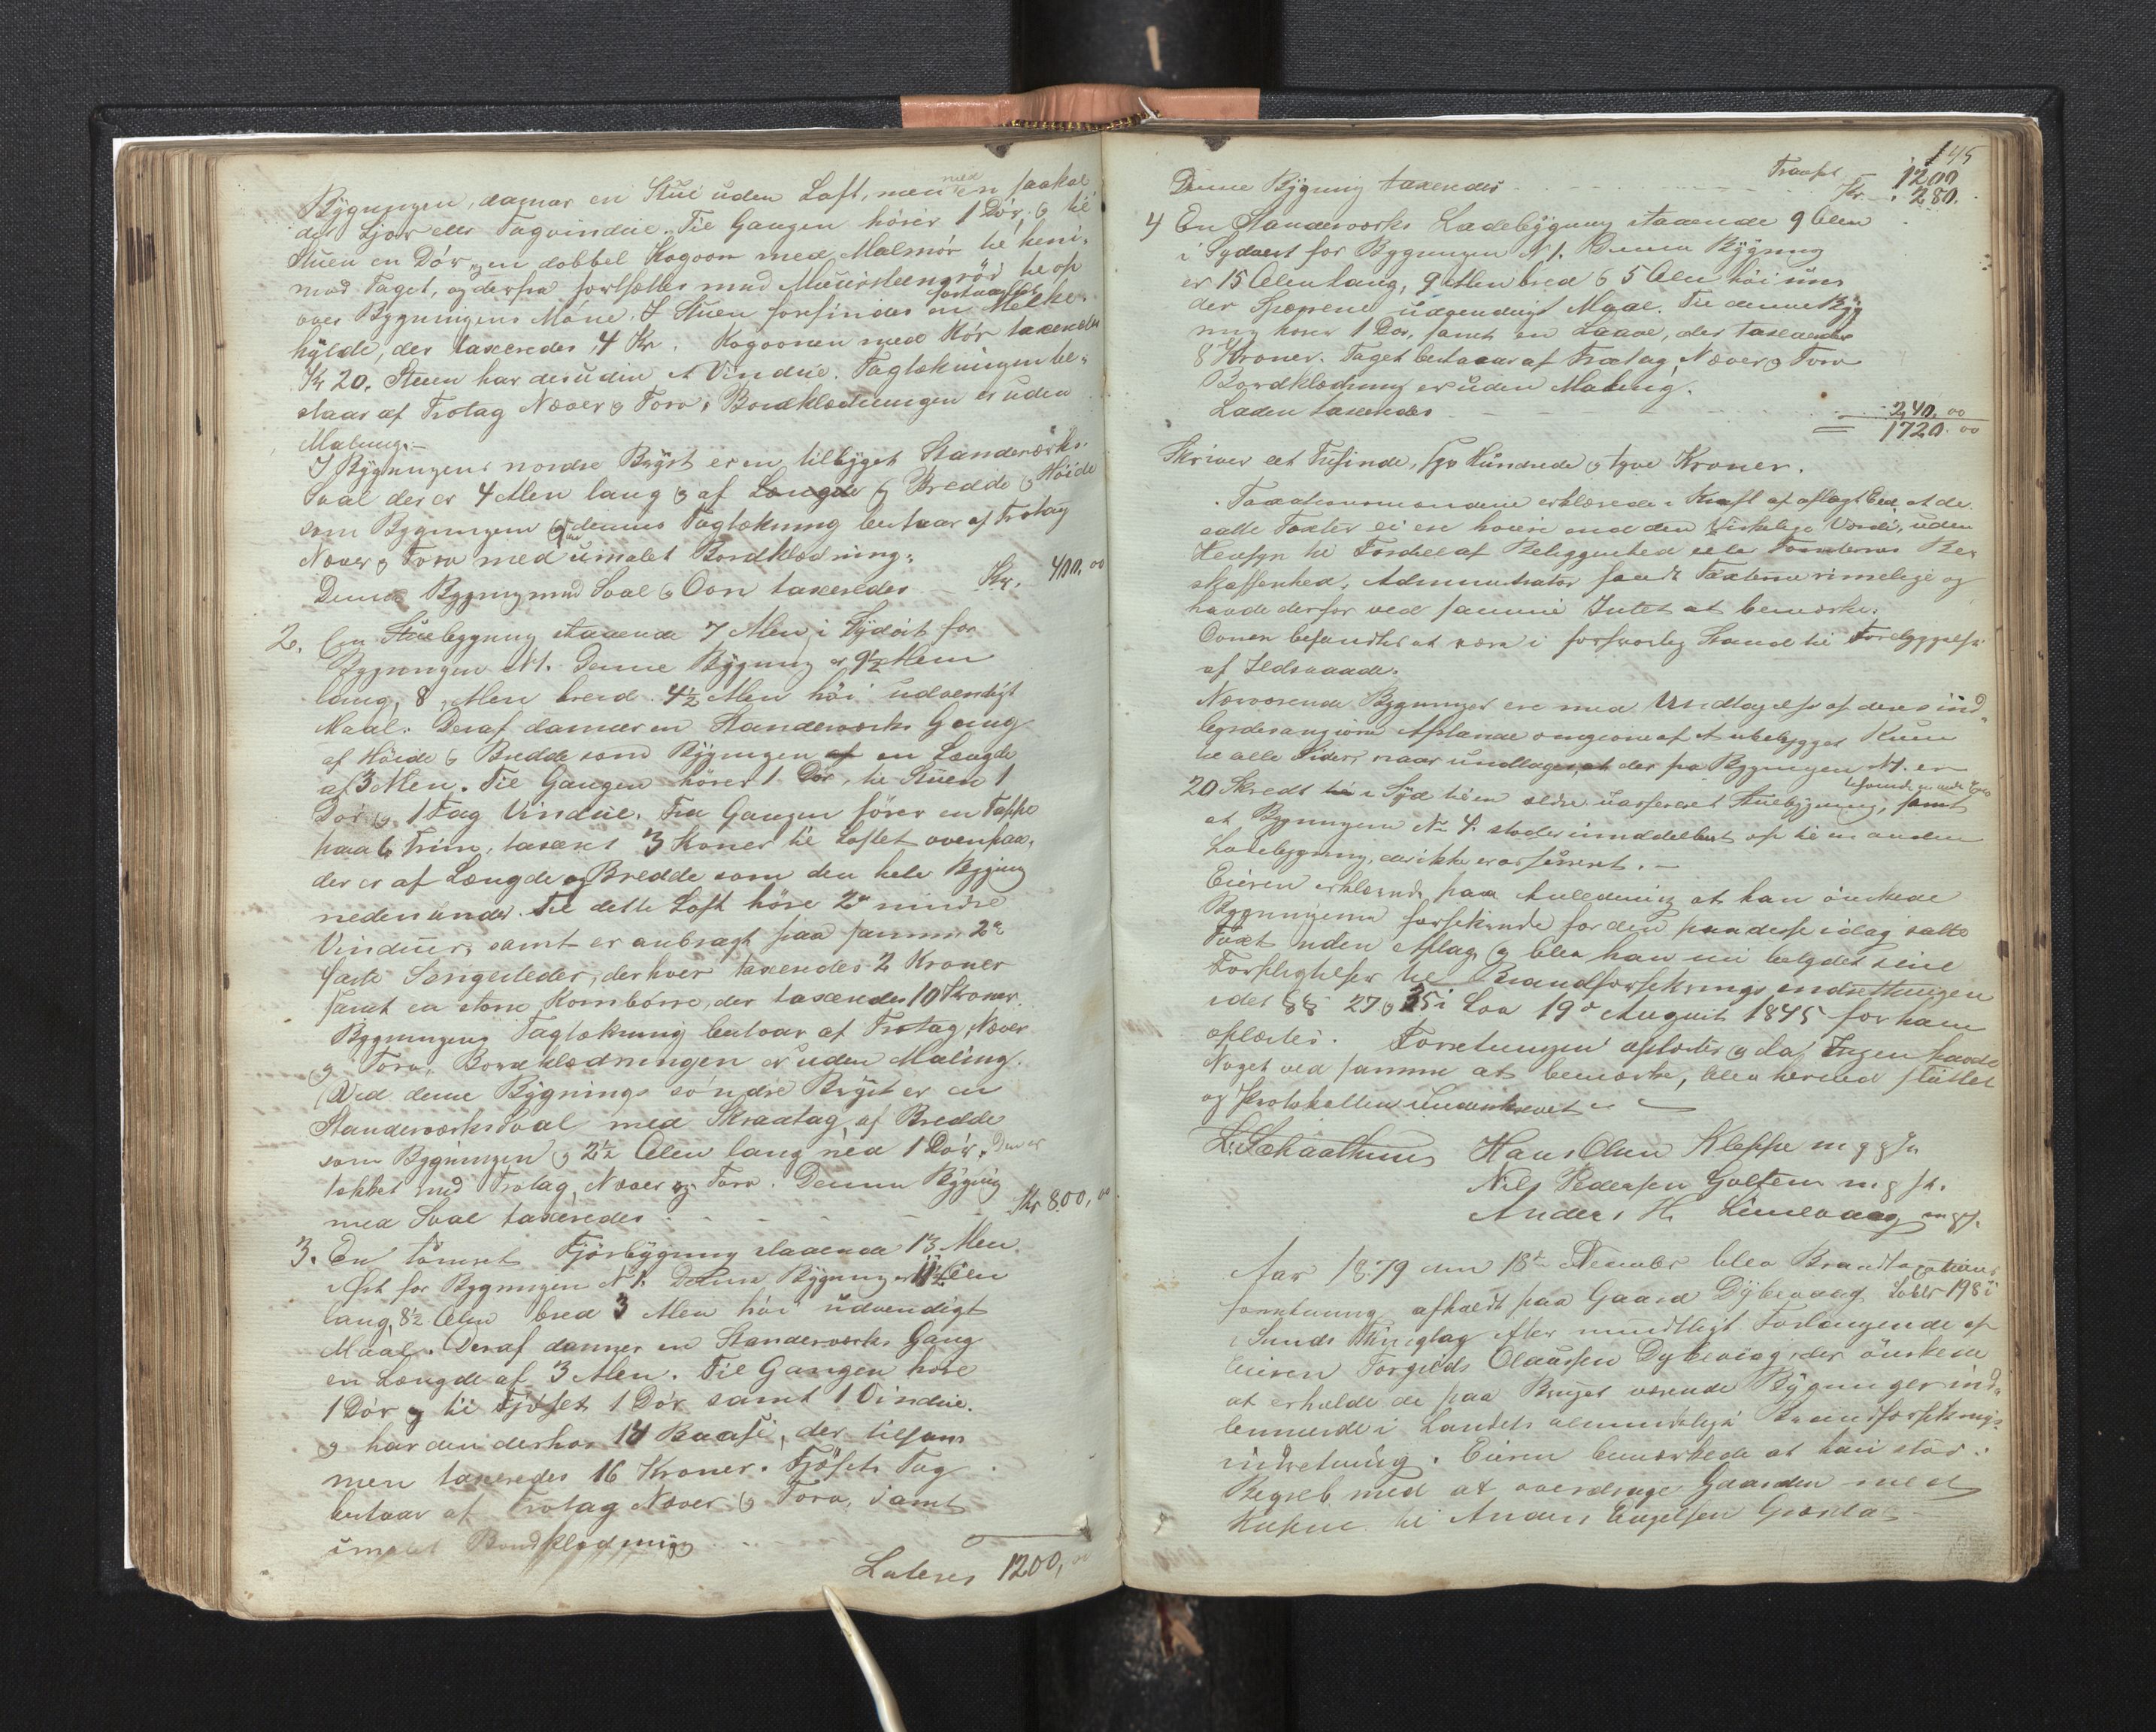 Bygningen, danner en Stue uden Loft, men med en saakal
det Ljor eller Tagvindue. Til Gangen hører 1 Dør, og til
Stuen en Dør og en dobbel Kogoon med Malmrør til heni-
mod Taget, og derfra fortsættes med Muurstensrør til op
over Bygningens Møne. I Stuen forefindes en fastnaglet Melke-
hylde, der taxeredes 4 Kr. Kogoonen med Rør taxeredes
Kr 20. Stuen har desuden et Vindue. Tagtækningen be-
staar af Trotag Næver og Torv, Bordklædningen er uden
Maling.
I Bygningens nordre Bryst er en tilbyget Standerværks-
Sval der er 4 Alen lang og af Længde og Bredde og Høide
som Bygningen og dennes Tagtækning bestaar af Trotag
Næver og Torv med umalet Bordklædning.
Denne Bygning med Sval og Oon taxeredes Kr. 400,00
2. En Stuebygning staaende 7 Alen i Sydost for
Bygningen N 1. Denne Bygning er 9½ Alen
lang, 8 Alen bred 4½ Alen høi udvendigt
Maal. Deraf danner en Standerværks Gang
af Høide og Bredde som Bygningen af en Længde
af 3 Alen. Til Gangen hører 1 Dør, til Stuen 1
Dør og 1 Fag Vindue. Fra Gangen fører en Trappe
paa 6 Trin, taxeret 3 Kroner til Loftet ovenpaa,
der er af Længde og Bredde som den hele Bygning
nedenunder. Til dette Loft høre 2de mindre
Vinduer, samt er anbragt paa samme 2de
faste Sengesteder, der hver taxeredes 2 Kroner
samt en større Kornbørre, der taxeredes 10 Kroner.
Bygningens Tagtækning bestaar af Trotag, Næver
og Torv, Bordklædningen er uden Maling.
Ved denne Bygnings søndre Bryst er en
Standerværkssval med Skraatag af Bredde
som Bygningen og 2½ Alen lang med 1 Dør. Den er
tækket med Trotag, Næver og Torv. Denne Bygning
med Sval taxeredes - - - - Kr 800,00
3. En tømret Fjøsbygning staaende 13 Alen
i Øst for Bygningen N 1. Denne Bygning er 11½ Alen
lang, 8½ Alen bred 3 Alen høi udvendigt
Maal. Deraf danner en Standerværks Gang
en Længde af 3 Alen. Til Gangen høre
1 Dør og til Fjøset 1 Dør samt 1 Vindue.
og har den derhos 14 Baase, der tilsam
men taxeredes 16 Kroner. Fjøsets Tag
bestaar af Trotag Næver og Torv, samt
umalet Bordklædning
Lateres 1200,00
145
Transp. 1200
Denne Bygning taxeredes - - - Kr. 280.
4 En Standerværks Ladebygning staaende 9 Alen
i Sydvest for Bygningen N 1. Denne Bygning
er 15 Alen lang, 9 Alen bred og 5 Alen høi un
der Spærrene udvendigt Maal. Til denne Byg
ning hører 1 Dør, samt en Laave, der taxeredes
8 Kroner. Taget bestaaar af Trotag, Næver og Torv
Bordklædning er uden Maling.
Laden taxeredes - - - 240.00
1720.00
Skriver eet Tusinde, syv Hundrede og tyve Kroner.
Taxationsmændene erklærede i Kraft af aflagt Eed, at de
satte Taxter ei ere høiere end den virkelige Værdi, uden
Hensyn til Fordeel af Beliggenhed eller Tomternes Be-
skaffenhed. Administrator fandt Taxterne rimelige og
havde derfor ved samme Intet at bemærke.
Oonen befandtes at være i forsvarlig Stand til Forebyggelse
af Ildsvaade.
Nærværende Bygninger ere med Undtagelse af deres ind
byrdes angivne Afstande omgivne af et ubebygget Rum
til alle Sider, naar undtages, at der fra Bygningen N 1. er
20 Skredt til i Syd til en ældre uassureret Stuebygning, samt
at Bygningen No 4. støder umiddelbart op til en anden
Ladebygning, der ikke er assureret.
Eieren erklærede paa Anledning at han ønskede
Bygningerne forsikrede for den paa disse idag satte
Taxt uden Aflag, og blev han nu betydet sine
Forpligtelser til Brandforsikrings indretningen
idet §§ 27 og 35 i Lov 19de August 1845 for ham
oplæstes. Forretningen oplæstes og da Ingen havde
Noget ved samme at bemærke, blev hermed sluttet
og Protokollen underskrevet
Hans Olsen Kleppe m. p. P.
Nils Pedersen Golten m p P.
Anders H. Linevaag m p P.
Aar 1879 den 18de December blev Brandtaxations
forretning afholdt paa Gaard Dybevaag Løbr 198 i
Sunds Thinglag efter mundtligt Forlangende af
Eieren Torgeds Olaussen Dybevaag, der ønskede
at erholde de paa Bruget værende Bygninger ind-
lemmede i Landets almindelige Brandforsikrings-
indretning. Eieren bemærkede at han stod i
Begreb med at overdrage Gaarden med
Husene til Anders Engelsen